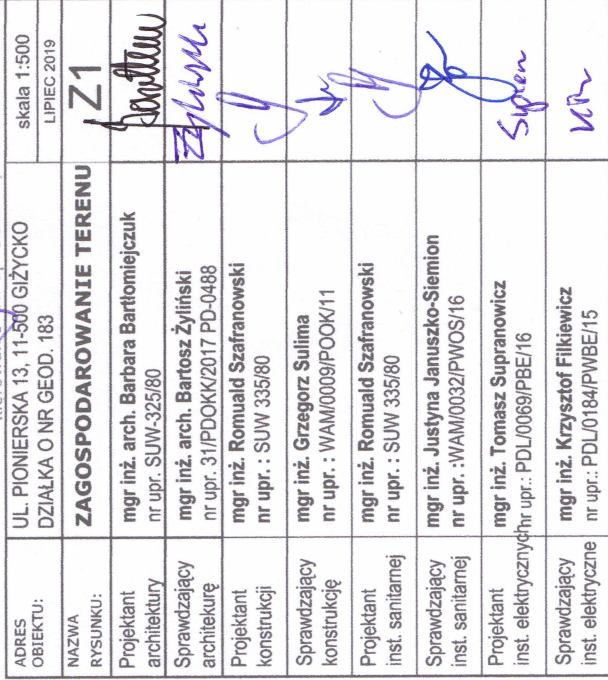 ADRES
OBIEKTU:
UL. PIONIERSKA 13, 11-500 GIŻYCKO
DZIAŁKA O NR GEOD. 183
skala 1:500
LIPIEC 2019
NAZWA
RYSUNKU:
ZAGOSPODAROWANIE TERENU
Z1
Projektant
architektury
mgr inż. arch. Barbara Bartłomiejczuk
nr upr. SUW-325/80
Sprawdzający
architekurę
mgr inż. arch. Bartosz Żyliński
nr upr. 31/PDOKK/2017 PD-0488
Projektant
konstrukcji
mgr inż. Romuald Szafranowski
nr upr. : SUW 335/80
Sprawdzający
konstrukcję
mgr inż. Grzegorz Sulima
nr upr. : WAM/0009/POOK/11
Projektant
inst. sanitarnej
mgr inż. Romuald Szafranowski
nr upr. : SUW 335/80
Sprawdzający
inst. sanitarnej
mgr inż. Justyna Januszko-Siemion
nr upr. :WAM/0032/PWOS/16
Projektant
inst. elektrycznych
mgr inż. Tomasz Supranowicz
nr upr.: PDL/0069/PBE/16
Sprawdzający
inst. elektryczne
mgr inż. Krzysztof Filkiewicz
nr upr.: PDL/0184/PWBE/15